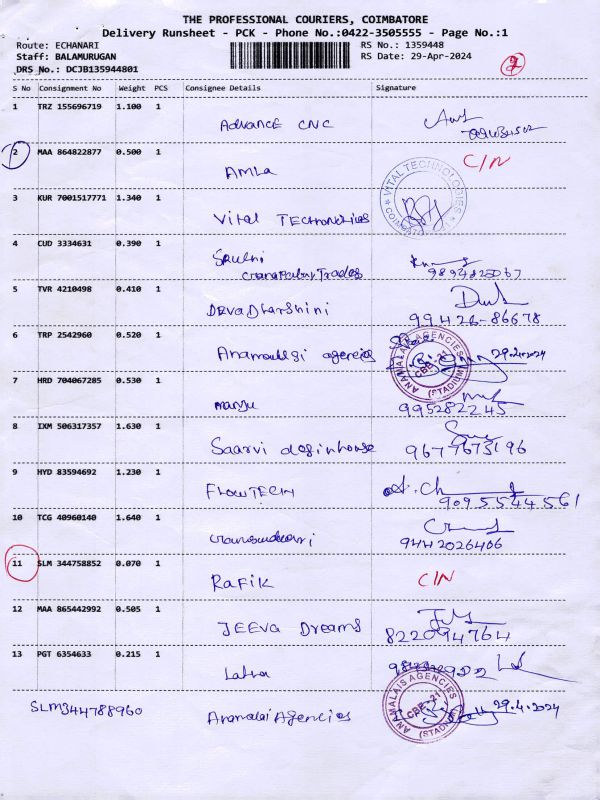 THE PROFESSIONAL COURIERS, COIMBATORE
Delivery Runsheet - PCK - Phone No.:0422-3505555 - Page No.:1
Route: ECHANARI RS No.: 1359448
Staff: BALAMURUGAN RS Date: 29-Apr-2024
DRS No.: DCJB135944801
S No Consignment No Weight PCS Consignee Details Signature
1 TRZ 155696719 1.100 1 Advance CNC
2 MAA 864822877 0.500 1 AMLA C/N
3 KUR 7001517771 1.340 1 Vital Technologies VITAL TECHNOLOGIES COIMBATORE
4 CUD 3334631 0.390 1
5 TVR 4210498 0.410 1 Devadharshini 99426-86678
6 TRP 2542960 0.520 1 agencies ANAMALAIS AGENCIES CBE-21 (STADIUM)
7 HRD 704067285 0.530 1 manju 995282245
8 IXM 506317357 1.630 1 Saarvi desinhouse 9677673196
9 HYD 83594692 1.230 1 FlowTECH 9095544561
10 TCG 40960140 1.640 1 9442026406
11 SLM 344758852 0.070 1 Rafik C/N
12 MAA 865442992 0.505 1 JEEVA Dreams 822094764
13 PGT 6354633 0.215 1 Latha
SLM344788960 Anamalai Agencies ANAMALAIS AGENCIES CBE-21 (STADIUM) 29.4.2024